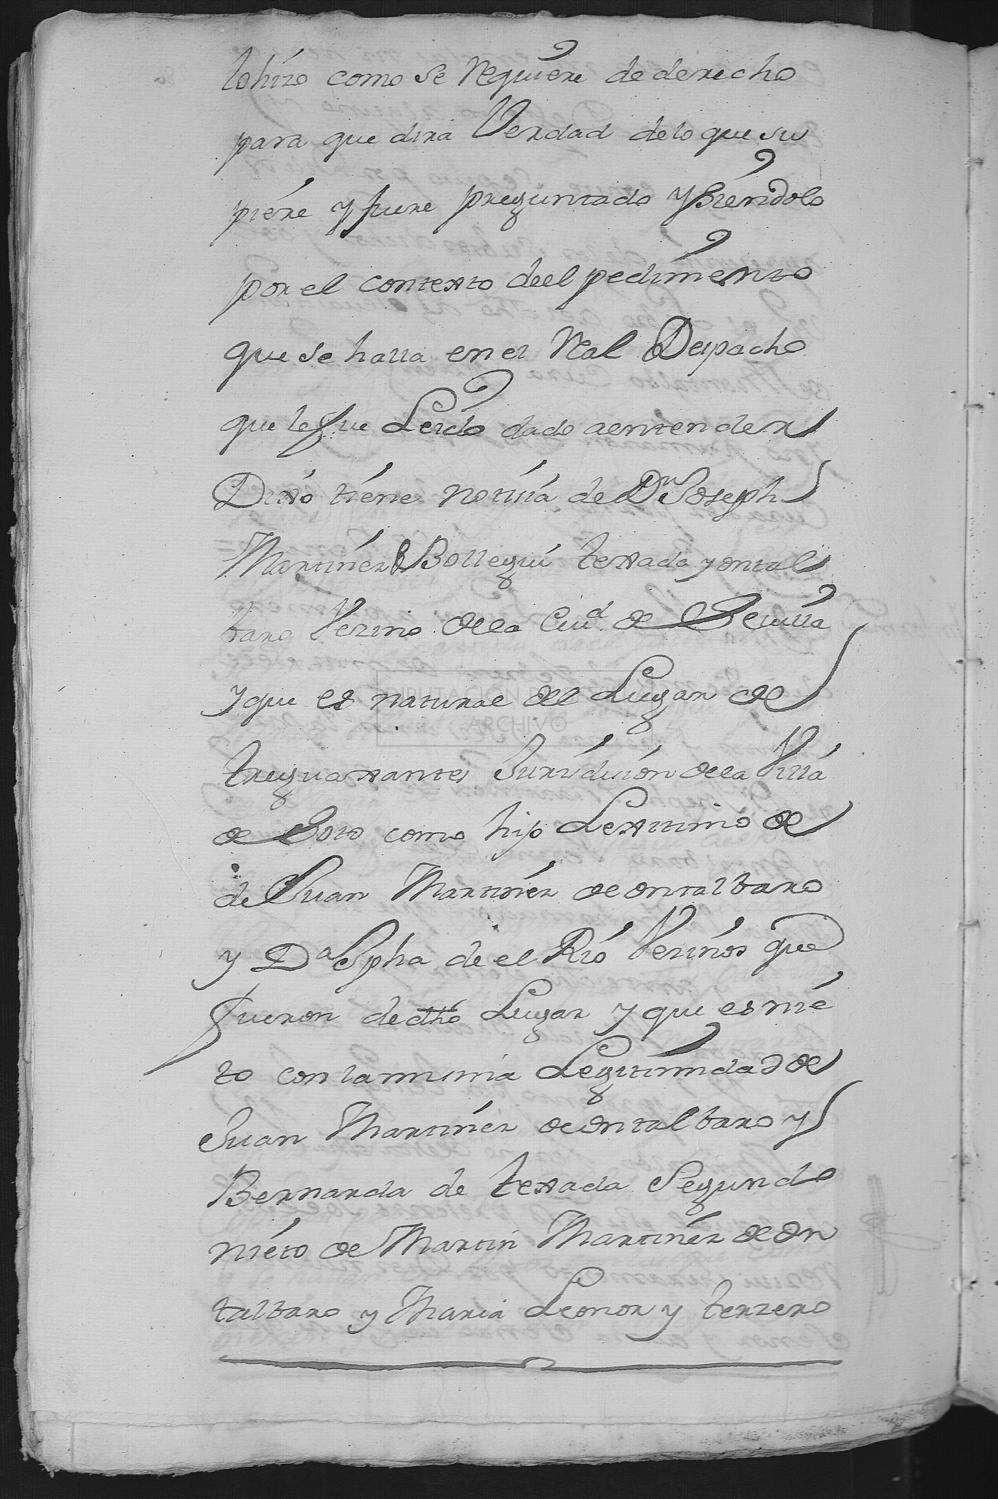 lo hizo como se requiere de derecho
para que dira Verdad de lo que su
piere y fuere preguntado y siendolo
por el contexto deel pedimento
que se halla en el Real Despacho
que le fue Leido dado a entender
Dixo tiene noticia de Dn Joseph
Martinez Bollegui texada y ontal
baro Vezino de la Ciud de Sevilla
y que es natural del Lugar de
treguaxantes Jurisdicion de la Villa
de Soto como hijo Lexitimo de
de Juan Martinez de ontalbaro
y Da Jpha de el Rio Vezinos que
fueron de dho Lugar y que es nie
to con la misma Legitimidad de
Juan Martinez de ontalbaro y
Bernarda de texada Segundo
nieto de Martin Martinez de on
talbaro y Maria Leonor y terzero
ARCHIVO